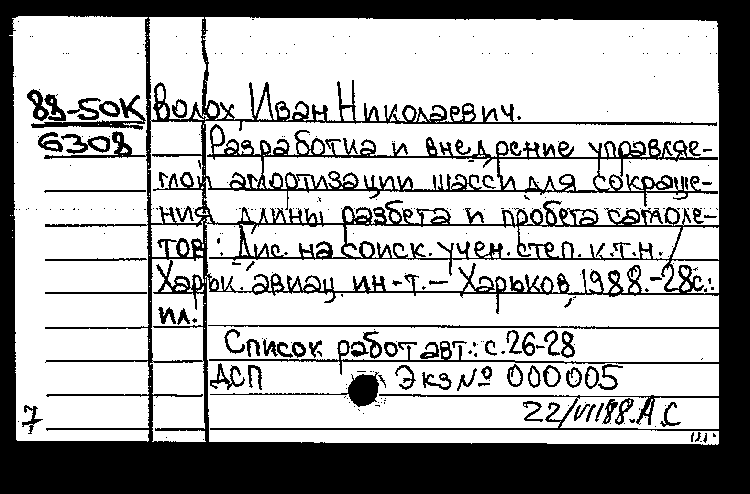 88-50К Волох, Иван Николаевич.
6308 Разработка и внедрение управляе-
мой амортизации шасси для сокраще-
ния длины разбега и пробега самоле-
тов : Дис. на соиск. учен. степ. к.т.н. /
Харьк. авиац. ин-т. – Харьков, 1988. -28с.:
ил.
Список работ авт.: с.26-28
ДСП Экз № 000005
7 22/VII88. А.С